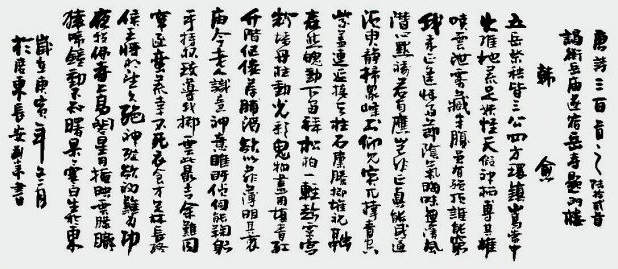 唐詩三百首之陸拾貳首
謁衡岳廟遂宿岳寺題門樓
韓愈
五岳祭秩皆三公四方環鎮嵩當中
火維地荒足妖怪天假神柄專其雄
噴雲泄霧藏半腹雖有絕頂誰能窮
我來正逢秋雨節陰氣晦昧無清風
潛心默禱若有應豈非正直能感通
靜掃眾峰出仰見突兀撐青空
紫蓋連延接天柱石廩騰擲堆祝融
森然魄動下馬拜松柏一徑趨靈宮
粉墻丹柱動光彩鬼物畫圖填青紅
升階傴僂薦脯酒欲以菲薄明其衷
廟令老人識神意睢盱偵伺能鞠躬
手持杯珓導我擲云此最吉餘難同
竄逐蠻荒幸不死衣食才足甘長終
侯王將相望久絕神縱欲福難為功
夜投佛寺上高閣星月掩映雲曈曨
猿鳴鐘動不知曙杲杲寒日生於東
歲在庚寅年五月
於廣東長安書